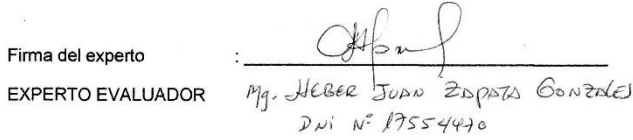 Firma del experto :
EXPERTO EVALUADOR Mg. HEBER JUAN ZAPATA GONZALES
DNi Nº 17554470